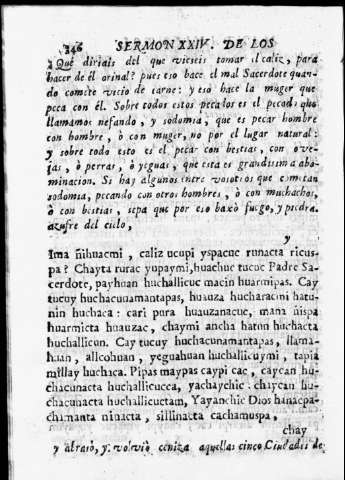 346 SERMON XXIV. DE LOS
¿Qué diriais del que vieseis tomar el caliz, para
hacer de él orinal? pues eso hace el mal Sacerdote quan-
do comete vicio de carne: y eso hace la muger que
peca con él. Sobre todos estos pecados es el pecado que
llamamos nefando, y sodomia, que es pecar hombre
con hombre, ò con muger, no por el lugar natural:
y sobre todo esto es el pecar con bestias, con ove-
jas, ò perras, ò yeguas, que esta es grandissima abo-
minacion. Si hay algunos entre vosotros que cometan
sodomia, pecando con otros hombres, ò con muchachos,
ò con bestias, sepa que por eso baxò fuego, y piedra
azufre del cielo,
y
Ima ñihuacmi, caliz ucupi yspacuc runacta ricus-
pa? Chayta rurac yupaymi, huachuc tucuc Padre Sa-
cerdote, payhuan huchallicuc macin huarmipas. Cay
tucuy huchacunamantapas, huauza hucharacmi hatu-
nin huchaca: cari pura huauzanacuc, mana ñispa
huarmicta huauzac, chaymi ancha hatun huchacta
huchallicun. Cay tucuy huchacunamantapas, llama-
huan, allcohuan, yeguahuan huchallicuymi, tapia
millay huchaca. Pipas maypas caypi cac, caycan hu-
chacunacta huchallicucca, yachaychic: chaycan hu-
chacunacta huchallicuctam, Yayanchic Dios hanacpa-
chamanta ninacta, sillinacta cachamuspa,
chay
y abrasò, y volviò ceniza aquellas cinco Ciudades de